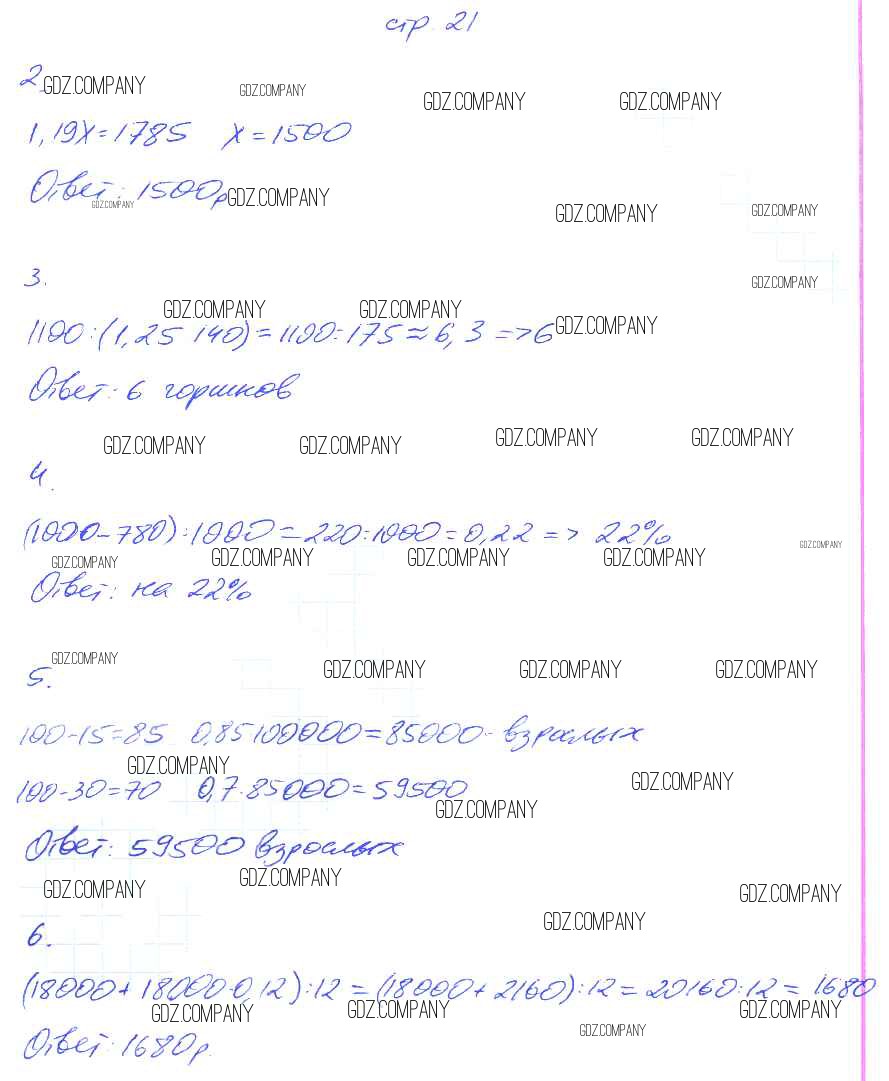 стр. 21
2. GDZ.COMPANY GDZ.COMPANY GDZ.COMPANY GDZ.COMPANY
1,19x=1785 x=1500
Ответ: 1500р GDZ.COMPANY
GDZ.COMPANY GDZ.COMPANY GDZ.COMPANY
3. GDZ.COMPANY
GDZ.COMPANY GDZ.COMPANY
1100:(1,25 140)=1100:175≈6,3 =>6 GDZ.COMPANY
Ответ: 6 горшков
GDZ.COMPANY GDZ.COMPANY GDZ.COMPANY GDZ.COMPANY
4.
(1000-780):1000=220:1000=0,22 => 22%
GDZ.COMPANY GDZ.COMPANY GDZ.COMPANY GDZ.COMPANY GDZ.COMPANY
Ответ: на 22%
GDZ.COMPANY GDZ.COMPANY GDZ.COMPANY GDZ.COMPANY
5.
100-15=85 0,85 100000=85000- взрослых
GDZ.COMPANY GDZ.COMPANY
100-30=70 0,7·85000=59500
GDZ.COMPANY
Ответ: 59500 взрослых
GDZ.COMPANY GDZ.COMPANY GDZ.COMPANY
GDZ.COMPANY
6.
(18000+18000·0,12):12=(18000+2160):12=20160:12=1680
GDZ.COMPANY GDZ.COMPANY GDZ.COMPANY
GDZ.COMPANY
Ответ: 1680р.